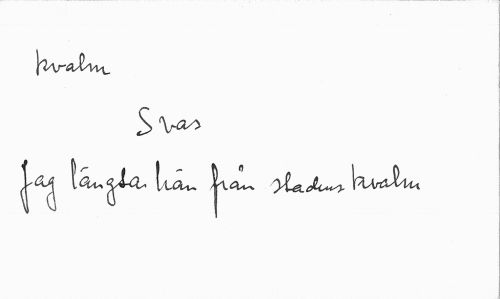 kvalm
Svas
Jag längtar hän från stadens kvalm